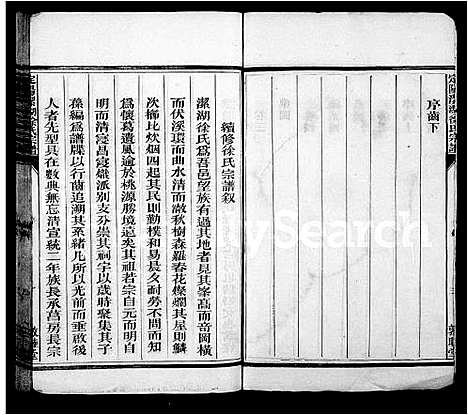 序啚下
續修徐氏宗譜叙
潔湖徐氏為吾邑望族有過其地者見其峯高而音岡橫
而伏溪環而曲水清而澈秋樹森羅春花燦爛其屋則鱗
次櫛比炊烟四起其民則勤樸和易晨夕耐勞不問而知
為懷葛遺風逾於桃源勝境遠矣其祖若宗自元而明自
明而清寔昌寔熾派別支分崇其祠宇以歲時聚集其子
葆編為譜牒以一行啚追溯其系緒凡所以光前而垂啟後
人者先型具在數典無忘清宣統二年族長承菖房長宗
敦睦堂
MySearch